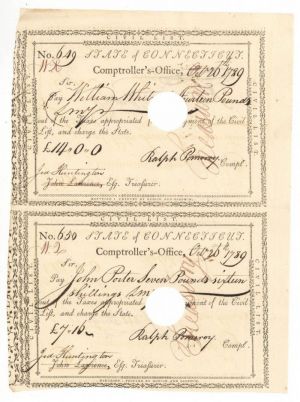 CIVIL LIST.
No. 649 STATE of CONNECTICUT.
Comptroller's-Office, Oct 26th 1789
Sir,
Pay William Whit Fourteen Pounds
out of the Taxes appropriated payment of the Civil
List, and charge the State.
£14.0.0
Ralph Pomeroy Compt.
Jed Huntington
John Lawrence, Esq. Treasurer.
CIVIL LIST.
No. 650 STATE of CONNECTICUT.
Comptroller's-Office, Oct 26th 1789
Sir,
Pay John Porter Seven Pounds sixteen
shillings
out of the Taxes appropriated payment of the Civil
List, and charge the State.
£7.16
Ralph Pomeroy Compt.
Jed Huntington
John Lawrence, Esq. Treasurer.
HARTFORD: PRINTED BY HUDSON AND GOODWIN.